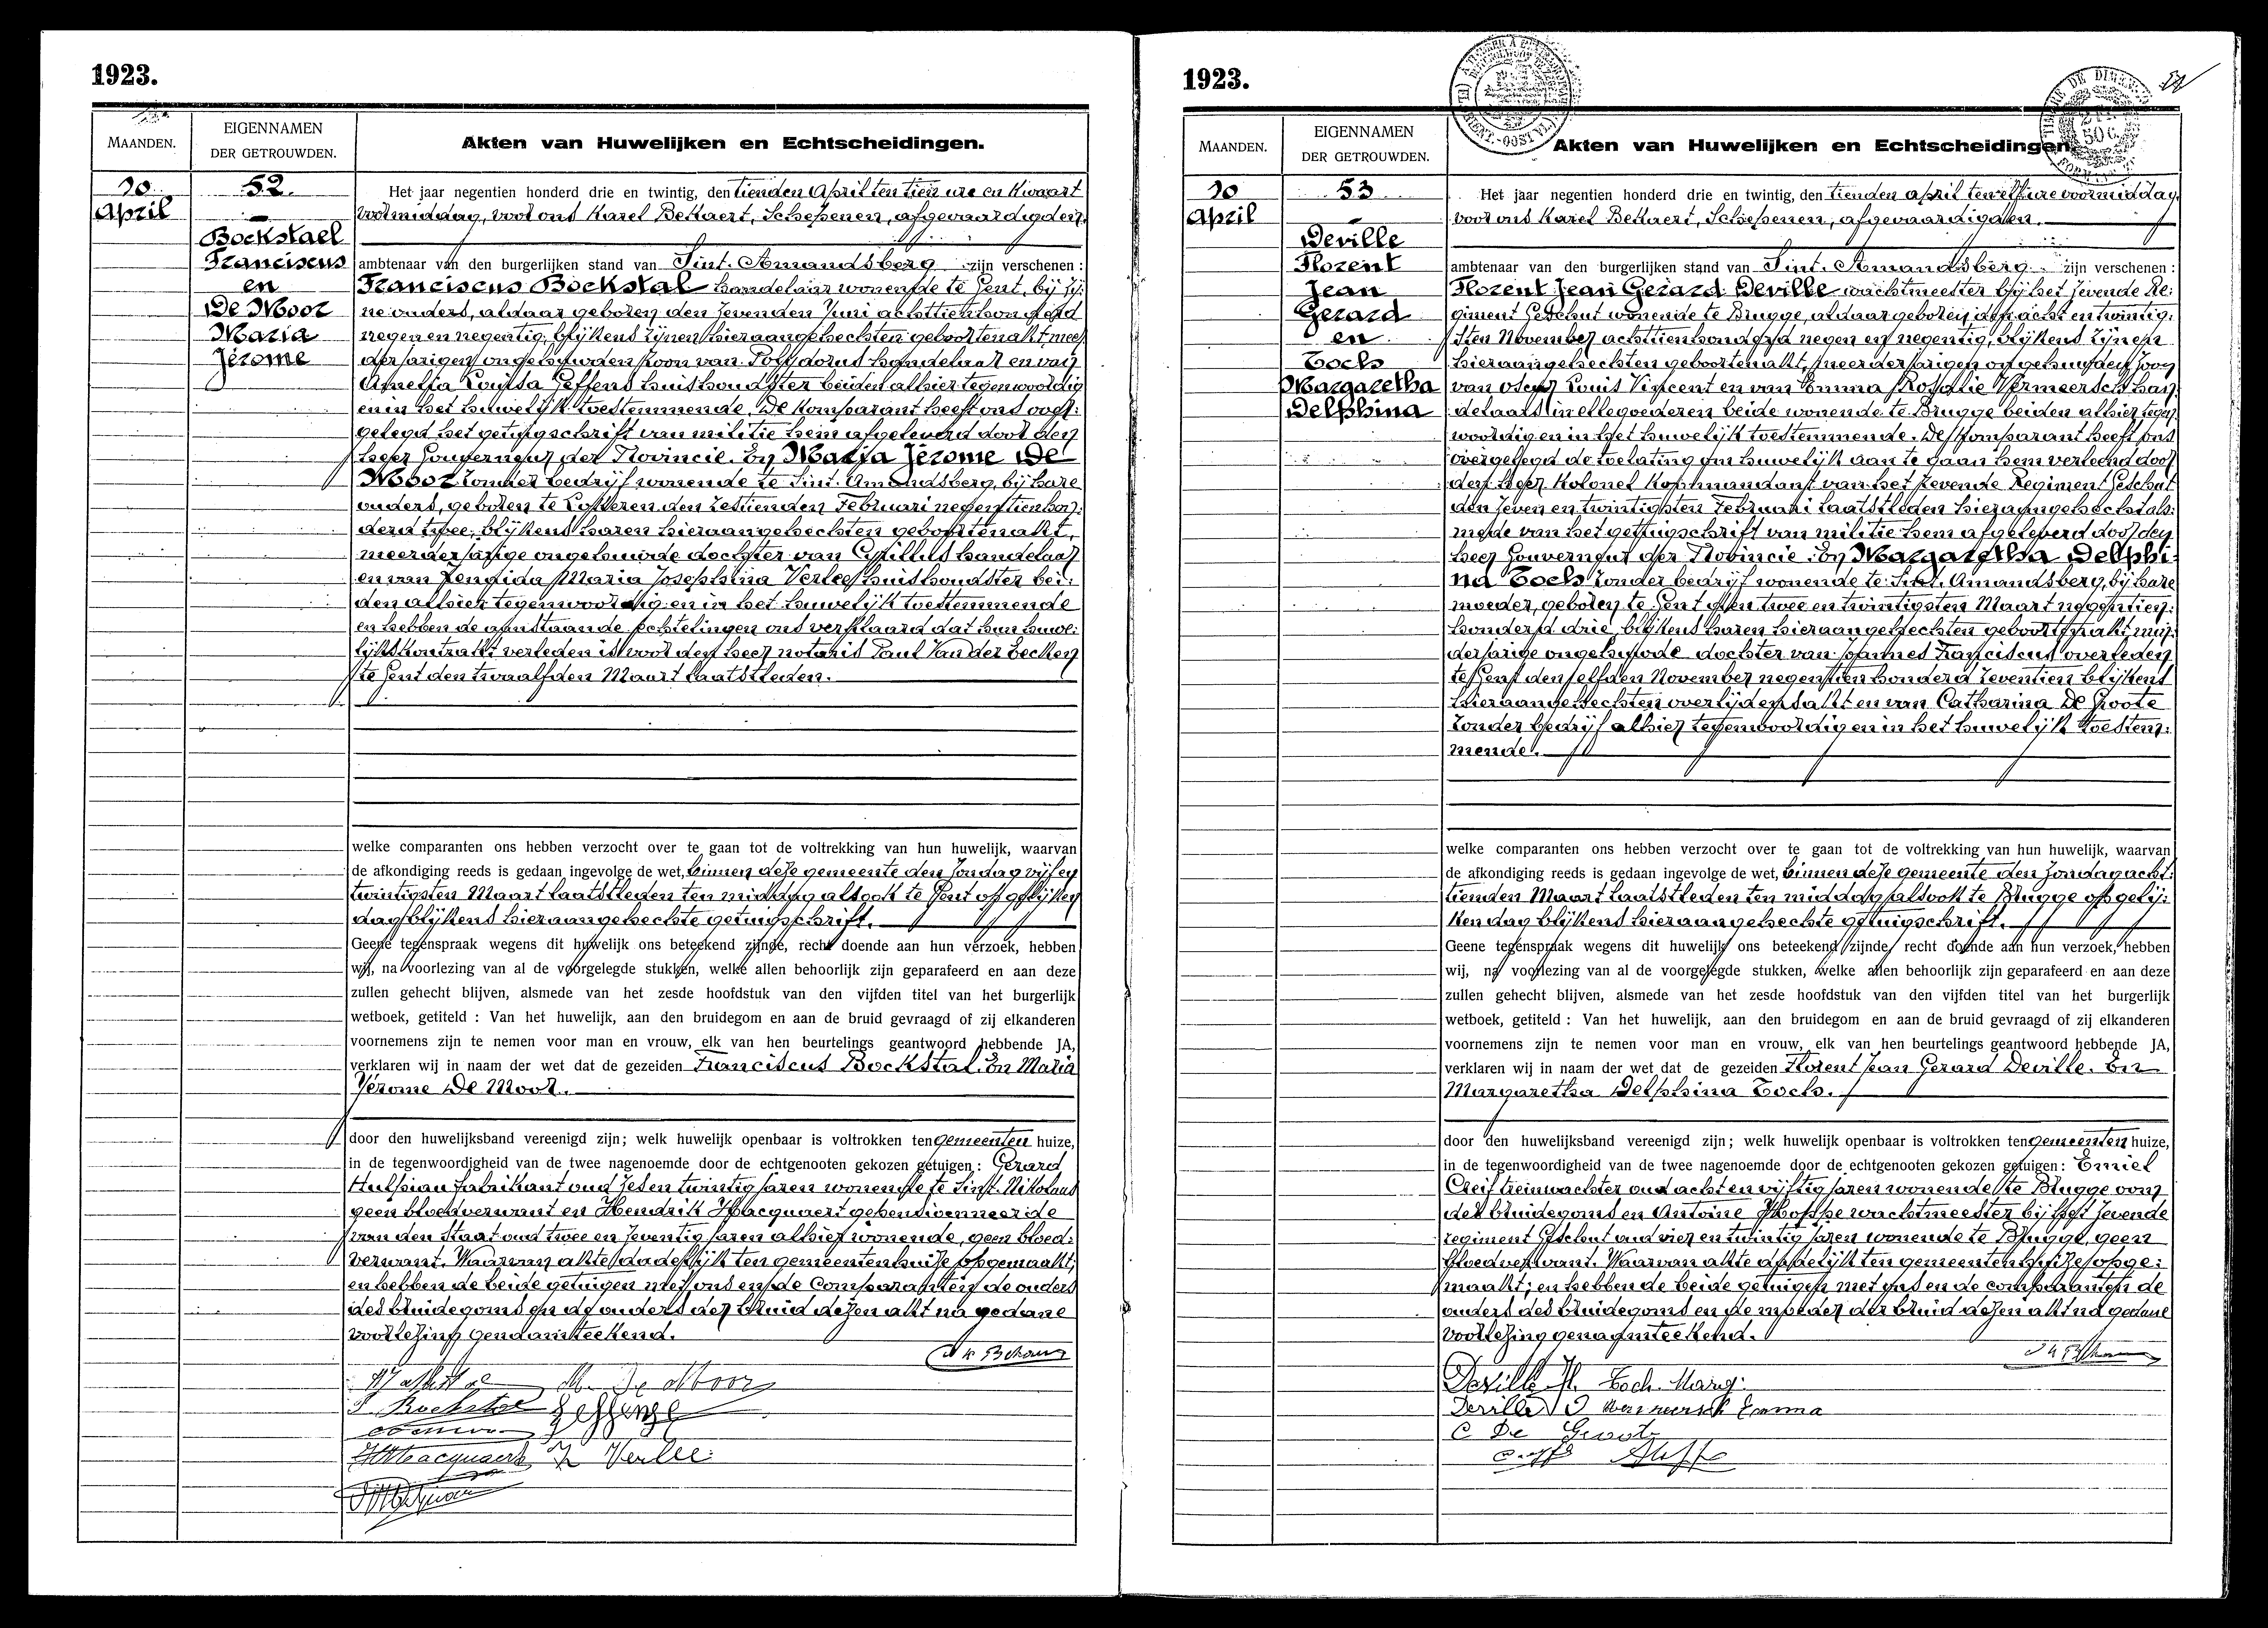 1923.
MAANDEN.
EIGENNAMEN
DER GETROUWDEN.
Akten van Huwelijken en Echtscheidingen.
10
April
52.
Bockstael
Franciscus
en
De Moor
Maria
Jérome
Het jaar negentien honderd drie en twintig, den tienden April ten tien ure en kwaart
voormiddag, voor ons Karel Bekaert, Schepenen, afgevaardigden
ambtenaar van den burgerlijken stand van Sint. Amandsberg zijn verschenen :
Franciscus Bockstal handelaar wonende te Gent, bij zij:
ne ouders, aldaar geboren den zevenden Juni achttienhonderd
negen en negentig, blijkens zijnen hieraangehechten geboortenakt, meer
derjarigen ongehuwden zoon van Polydorus handelaar en van
Amelia Louisa Geffens huishoudster beiden alhier tegenwoordig
en in het huwelijk toestemmende. De komparant heeft ons voor:
gelegd het getuigschrift van militie hem afgeleverd door den
heer Gouverneur der Provincie. En Maria Jérome De
Moor zonder bedrijf wonende te Sint. Amandsberg, bij hare
ouders, geboren te Lokeren den zestienden Februari negentienhon:
derd twee, blijkens haren hieraangehechten geboortenakt,
meerderjarige ongehuwde dochter van Cyrillus handelaar
en van Zenaida Maria Josephina Verlee huishoudster bei:
den alhier tegenwoordig en in het huwelijk toestemmende
en hebben de aanstaande echtelingen ons verklaard dat hun huwe:
lijkskontrakt verleden is voor den heer notaris Paul Van der Eecken
te Gent den twaalfden Maart laatstleden.
welke comparanten ons hebben verzocht over te gaan tot de voltrekking van hun huwelijk, waarvan
de afkondiging reeds is gedaan ingevolge de wet, binnen deze gemeente den Zondag vijf en
twintigsten Maart laatstleden ten middag alsook te Gent op gelijken
dag blijkens hieraangehechte getuigschrift.
Geene tegenspraak wegens dit huwelijk ons beteekend zijnde, recht doende aan hun verzoek, hebben
wij, na voorlezing van al de voorgelegde stukken, welke allen behoorlijk zijn geparafeerd en aan deze
zullen gehecht blijven, alsmede van het zesde hoofdstuk van den vijfden titel van het burgerlijk
wetboek, getiteld : Van het huwelijk, aan den bruidegom en aan de bruid gevraagd of zij elkanderen
voornemens zijn te nemen voor man en vrouw, elk van hen beurtelings geantwoord hebbende JA,
verklaren wij in naam der wet dat de gezeiden Franciscus Bockstal. En Maria
Jérome De Moor.
door den huwelijksband vereenigd zijn; welk huwelijk openbaar is voltrokken ten gemeenten huize,
in de tegenwoordigheid van de twee nagenoemde door de echtgenooten gekozen getuigen : Gerard
Hulpiau fabrikant oud zes en twintig jaren wonende te Sint. Nikolaus
geen bloedverwant en Hendrik Hacquaert gepensioneerde
van den Staat oud twee en zeventig jaren alhier wonende, geen bloed:
verwant. Waarvan akte dadelijk ten gemeentenhuize opgemaakt;
en hebben de beide getuigen met ons en de Comparanten de ouders
des bruidegoms en de ouders der bruid dezen akt na gedane
voorlezing genaamteekend.
M. De Moor
Bockstal
Verlee
1923.
MAANDEN.
EIGENNAMEN
DER GETROUWDEN.
Akten van Huwelijken en Echtscheidingen.
10
April
53
Deville
Florent
Jean
Gerard
en
Toch
Margaretha
Delphina
Het jaar negentien honderd drie en twintig, den tienden april ten elf ure voormiddag,
voor ons Karel Bekaert, Schepenen, afgevaardigden.
ambtenaar van den burgerlijken stand van Sint. Amandsberg zijn verschenen :
Florent Jean Gerard Deville wachtmeester bij het zevende Re:
giment Geschut wonende te Brugge, aldaar geboren den acht en twintig:
sten November achttienhonderd negen en negentig, blijkens zijnen
hieraangehechten geboortenakt, meerderjarigen ongehuwden zoon
van Oscar Louis Vincent en van Emma Rosalie Vermeersch han:
delaars in ellegoederen beide wonende te Brugge beiden alhier tegen
woordig en in het huwelijk toestemmende. De komparant heeft ons
overgelegd de toelating om huwelijk aan te gaan hem verleend door
den heer Kolonel Kommandant van het zevende Regiment Geschut
den zeven en twintigsten Februari laatstleden hieraangehecht als:
mede van het getuigschrift van militie hem afgeleverd door den
heer Gouverneur der Provincie. En Margaretha Delphi:
na Toch zonder bedrijf wonende te Sint. Amandsberg, bij hare
moeder, geboren te Gent den twee en twintigsten Maart negentien:
honderd drie, blijkens haren hieraangehechten geboortenakt, min:
derjarige ongehuwde dochter van Joannes Franciscus overleden
te Gent den elfden November negentien honderd zeventien blijkens
hieraangehechten overlijdensakt en van Catharina De Groote
zonder bedrijf alhier tegenwoordig en in het huwelijk toestem:
mende.
welke comparanten ons hebben verzocht over te gaan tot de voltrekking van hun huwelijk, waarvan
de afkondiging reeds is gedaan ingevolge de wet, binnen deze gemeente den Zondag acht:
tienden Maart laatstleden ten middag alsook te Brugge op gelij:
ken dag blijkens hieraangehechte getuigschrift.
Geene tegenspraak wegens dit huwelijk ons beteekend zijnde, recht doende aan hun verzoek, hebben
wij, na voorlezing van al de voorgelegde stukken, welke allen behoorlijk zijn geparafeerd en aan deze
zullen gehecht blijven, alsmede van het zesde hoofdstuk van den vijfden titel van het burgerlijk
wetboek, getiteld : Van het huwelijk, aan den bruidegom en aan de bruid gevraagd of zij elkanderen
voornemens zijn te nemen voor man en vrouw, elk van hen beurtelings geantwoord hebbende JA,
verklaren wij in naam der wet dat de gezeiden Florent Jean Gerard Deville. En
Margaretha Delphina Toch.
door den huwelijksband vereenigd zijn; welk huwelijk openbaar is voltrokken ten gemeenten huize,
in de tegenwoordigheid van de twee nagenoemde door de echtgenooten gekozen getuigen : Emiel
treinwachter oud acht en vijftig jaren wonende te Brugge oom
des bruidegoms en Antoine Hoffe wachtmeester bij het zevende
regiment Geschut oud vier en twintig jaren wonende te Brugge, geen
bloedverwant. Waarvan akte dadelijk ten gemeentenhuize opge:
maakt; en hebben de beide getuigen met ons en de comparanten de
ouders des bruidegoms en de moeder der bruid dezen akt na gedane
voorlezing genaamteekend.
Deville Fl. Toch. Marg.
Deville O Vermeersch Emma
C De Groote